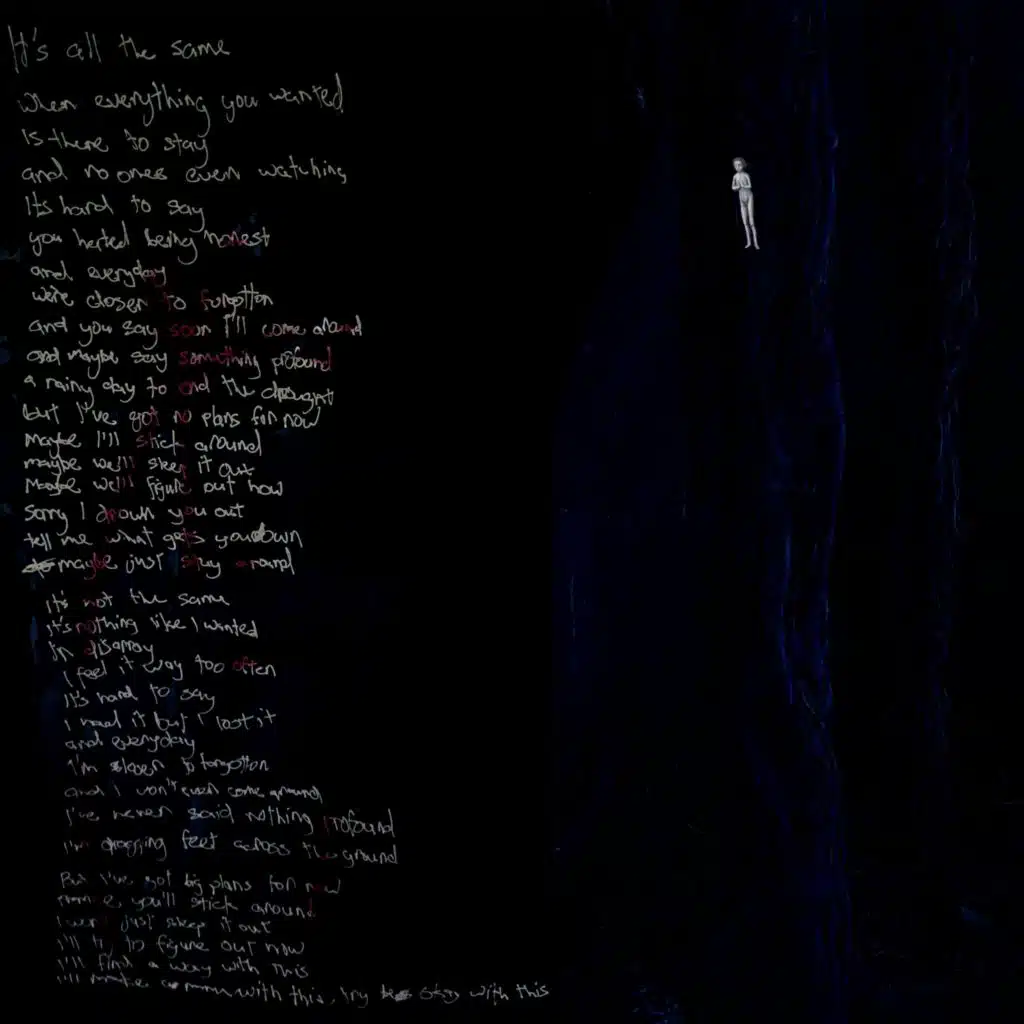 It's all the same
When everything you wanted
Is there to stay
and no ones even watching
Its hard to say
you hated being honest
and everyday
we're closer to forgotten
and you say soon I'll come around
and maybe say something profound
a rainy day to end the drought
but I've got no plans for now
maybe I'll stick around
maybe we'll sleep it out
Maybe we'll figure out how
Sorry I drown you out
tell me what gets you down
maybe just stay around
it's not the same
it's nothing like I wanted
I'm disarray
I feel it way too often
It's hard to say
I had it but I lost it
and everyday
I'm closer to forgotten
and I won't even come around
I've never said nothing profound
I'm dragging feet across the ground
But I've got big plans for now
you'll stick around
I won't just sleep it out
I'll try to figure out how
I'll find a way with this
I'll make with this, try stay with this